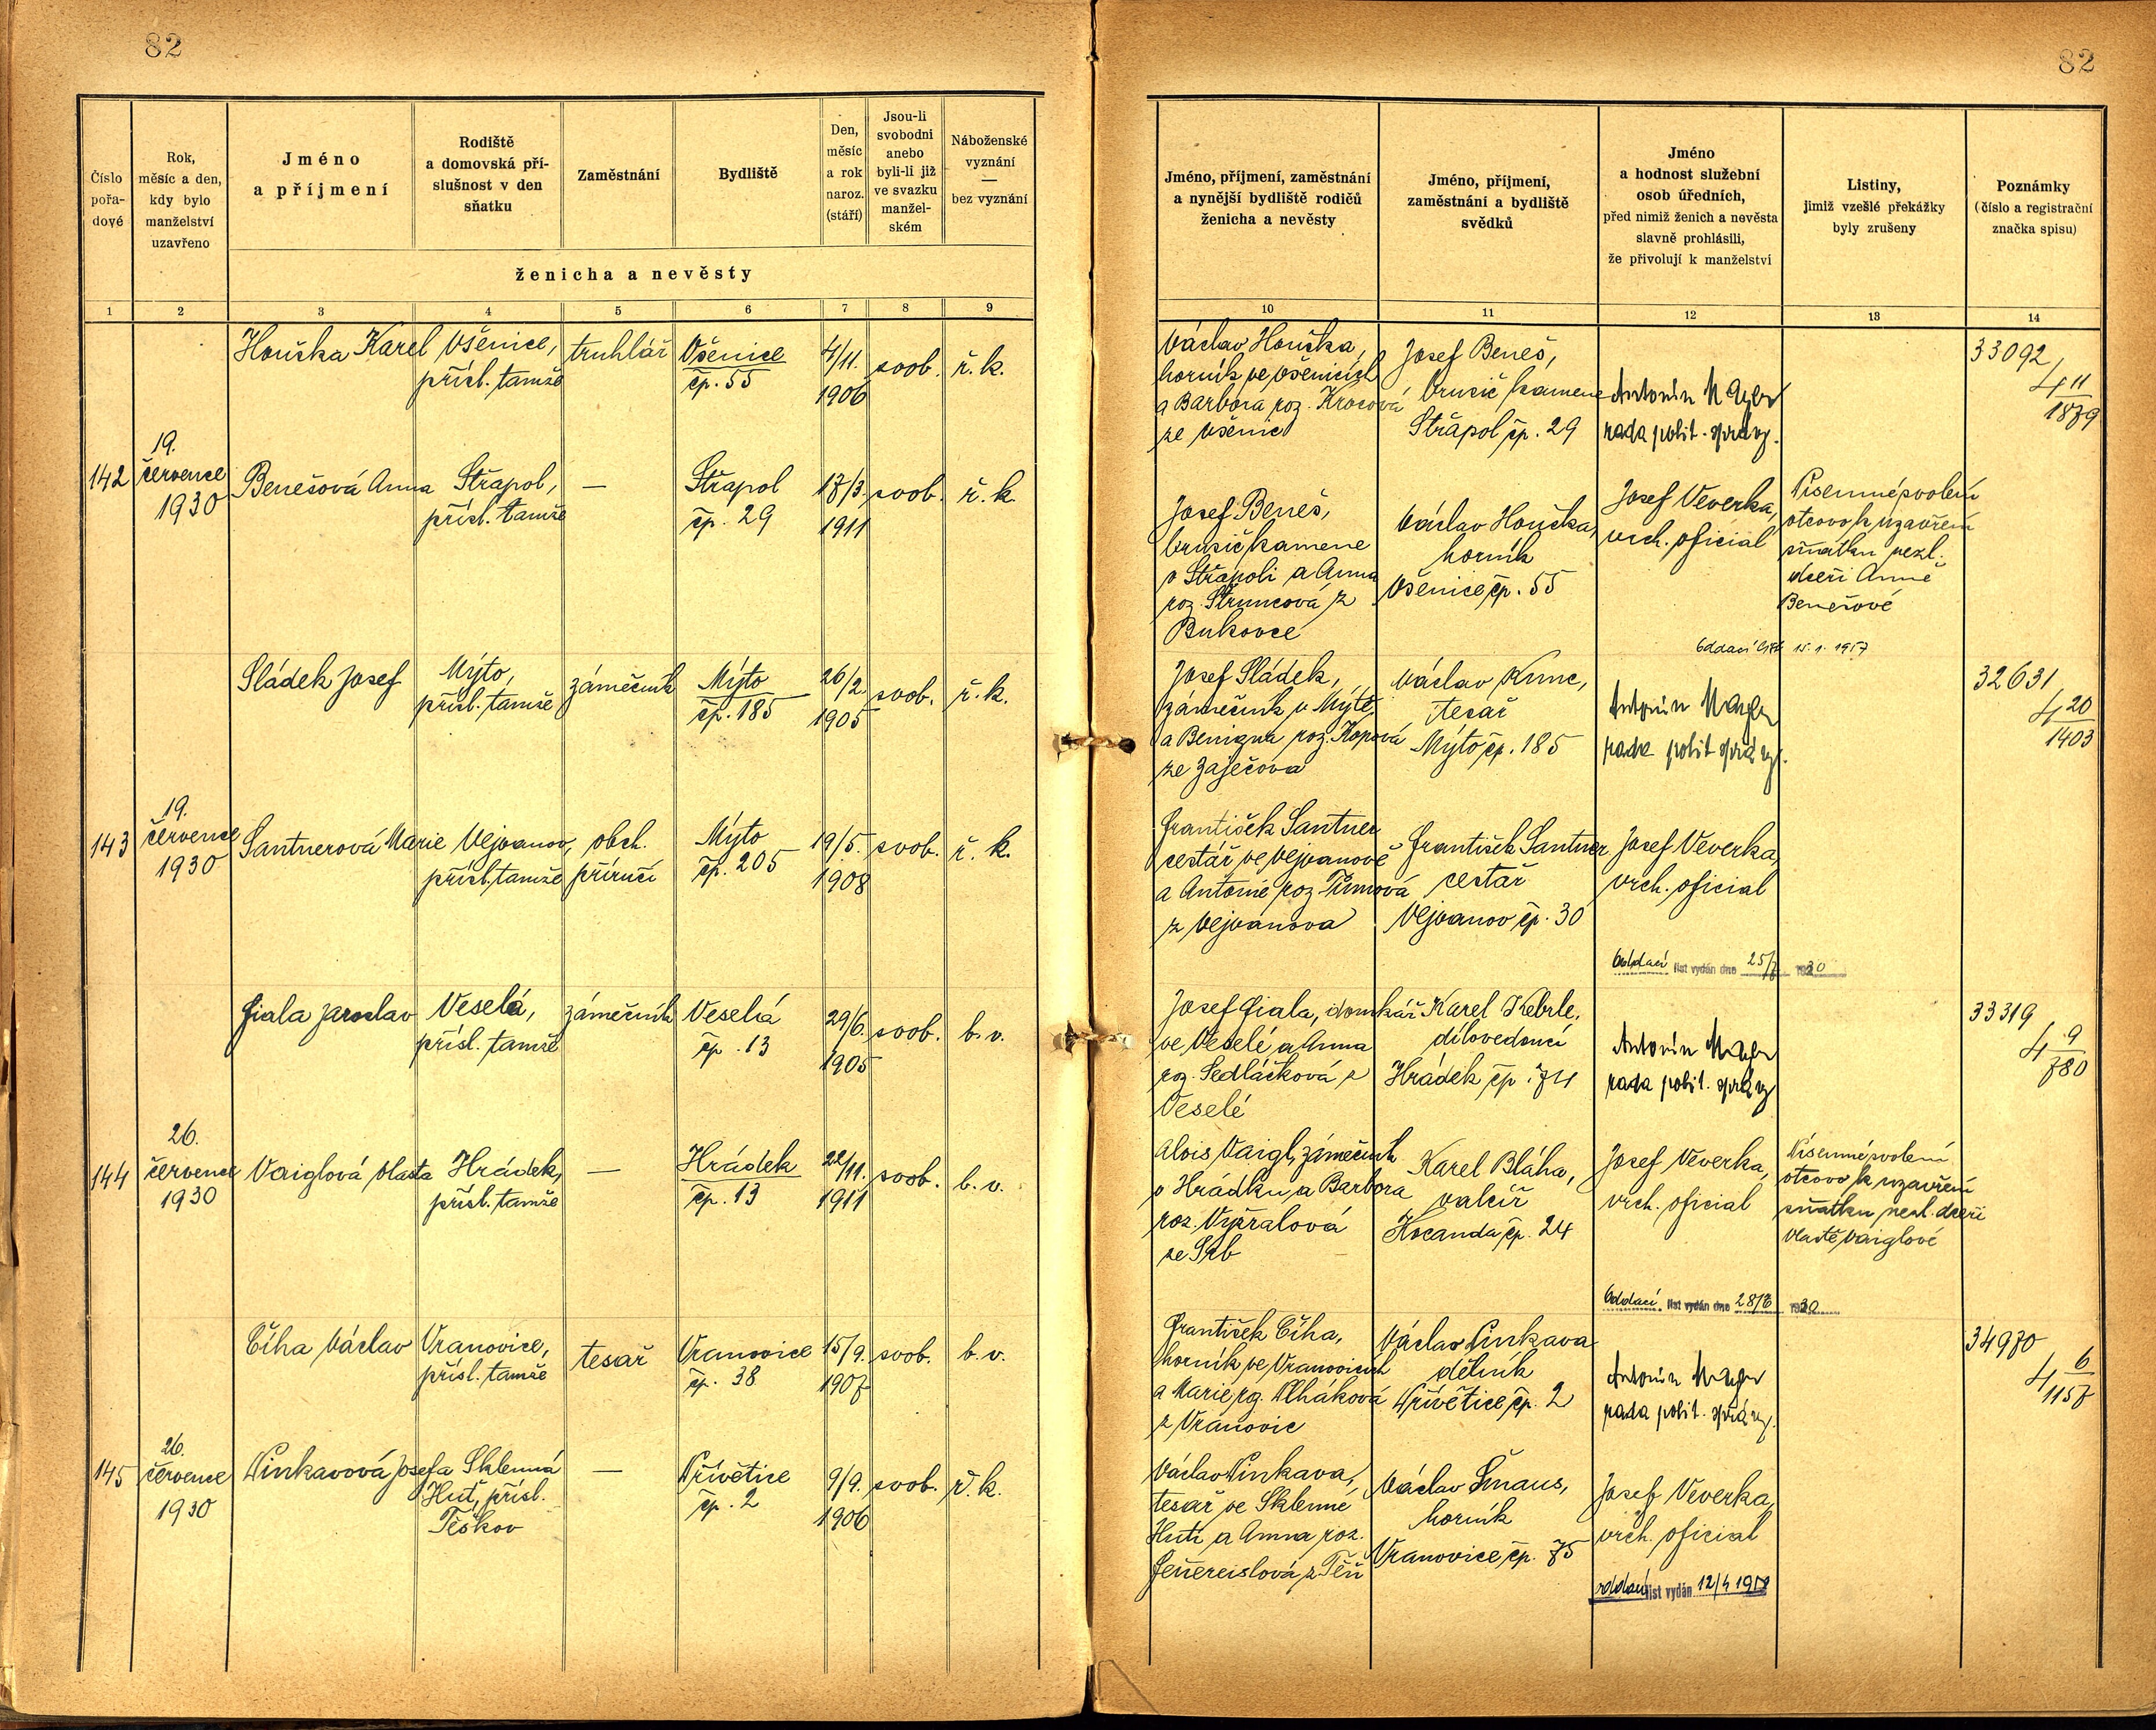 82
82
Číslo
pořa-
dové
Rok,
měsíc a den,
kdy bylo
manželství
uzavřeno
Jméno
a příjmení
Rodiště
a domovská pří-
slušnost v den
sňatku
Zaměstnání
Bydliště
Den,
měsíc
a rok
naroz.
(stáří)
Jsou-li
svobodni
anebo
byli-li již
ve svazku
manžel-
ském
Náboženské
vyznání
—
bez vyznání
ženicha a nevěsty
Jméno, příjmení, zaměstnání
a nynější bydliště rodičů
ženicha a nevěsty
Jméno, příjmení,
zaměstnání a bydliště
svědků
Jméno
a hodnost služební
osob úředních,
před nimiž ženich a nevěsta
slavně prohlásili,
že přivolují k manželství
Listiny,
jimiž vzešlé překážky
byly zrušeny
Poznámky
(číslo a registrační
značka spisu)
1 2 3 4 5 6 7 8 9
10 11 12 13 14
142
19.
července
1930
Houška Karel
Všenice,
přísl. tamže
truhlář
Všenice
čp. 55
4/11.
1906
svob.
ř. k.
Václav Houška,
horník ve Všenicích
a Barbora roz. Krocová
ze Všenic
Josef Beneš,
brusič kamene
Střapol čp. 29
Antonín
rada polit. správy.
33092
4 11
1879
Benešová Anna
Střapol,
přísl. tamže
—
Střapol
čp. 29
17/3.
1911
svob.
ř. k.
Josef Beneš,
brusič kamene
v Střapoli a Anna
roz. Štruncová z
Bukovce
Václav Houška,
horník
Všenice čp. 55
Josef Veverka,
vrch. oficial
Písemné svolení
otcovo k uzavření
sňatku nezl.
dceři Anně
Benešové
Oddací list 15. 1. 1957
143
19.
července
1930
Sládek Josef
Mýto,
přísl. tamže
zámečník
Mýto
čp. 185
26/2.
1905
svob.
ř. k.
Josef Sládek,
zámečník v Mýtě
a Benigna roz. Kopová
ze Zaječova
Václav Kunc,
tesař
Mýto čp. 185
Antonín
rada polit správy.
32631
4 20
1403
Santnerová Marie
Vejvanov,
přísl. tamže
obch.
příručí
Mýto
čp. 205
19/5.
1908
svob.
ř. k.
František Santner
cestář ve Vejvanově
a Antonie roz. Tůmová
z Vejvanova
František Santner
cestář
Vejvanov čp. 30
Josef Veverka,
vrch. oficial
Oddací list vydán dne 25/7 1930
144
26.
července
1930
Fiala Jaroslav
Veselá,
přísl. tamže
zámečník
Veselá
čp. 13
29/6.
1905
svob.
b. v.
Josef Fiala, domkář
ve Veselé a Anna
roz. Sedláčková z
Veselé
Karel Kebrle,
dílovedoucí
Hrádek čp. 74
Antonín
rada polit. správy
33319
4 9
780
Vaiglová Vlasta
Hrádek,
přísl. tamže
—
Hrádek
čp. 13
22/11.
1911
svob.
b. v.
Alois Vaigl, zámečník
v Hrádku a Barbora
roz. Vyžralová
ze Srb
Karel Bláha,
valcíř
Kocanda čp. 24
Josef Veverka,
vrch. oficial
Písemné svolení
otcovo k uzavření
sňatku nezl. dceři
Vlastě Vaiglové
Oddací list vydán dne 28/7 1930
145
26.
července
1930
Číha Václav
Vranovice,
přísl. tamže
tesař
Vranovice
čp. 38
15/9.
1907
svob.
b. v.
František Číha,
horník ve Vranovicích
a Marie roz.
z Vranovic
Václav Pinkava
dělník
Přívětice čp. 2
Antonín
rada polit. správy.
34970
4 6
1157
Pinkavová Josefa
Sklenná
Huť, přísl.
Těškov
—
Přívětice
čp. 2
9/9.
1906
svob.
ř. k.
Václav Pinkava,
tesař ve Sklenné
Huti a Anna roz.
Feuereislová z Těň
Václav Šmaus,
horník
Vranovice čp. 75
Josef Veverka,
vrch. oficial
oddací list vydán 12/4